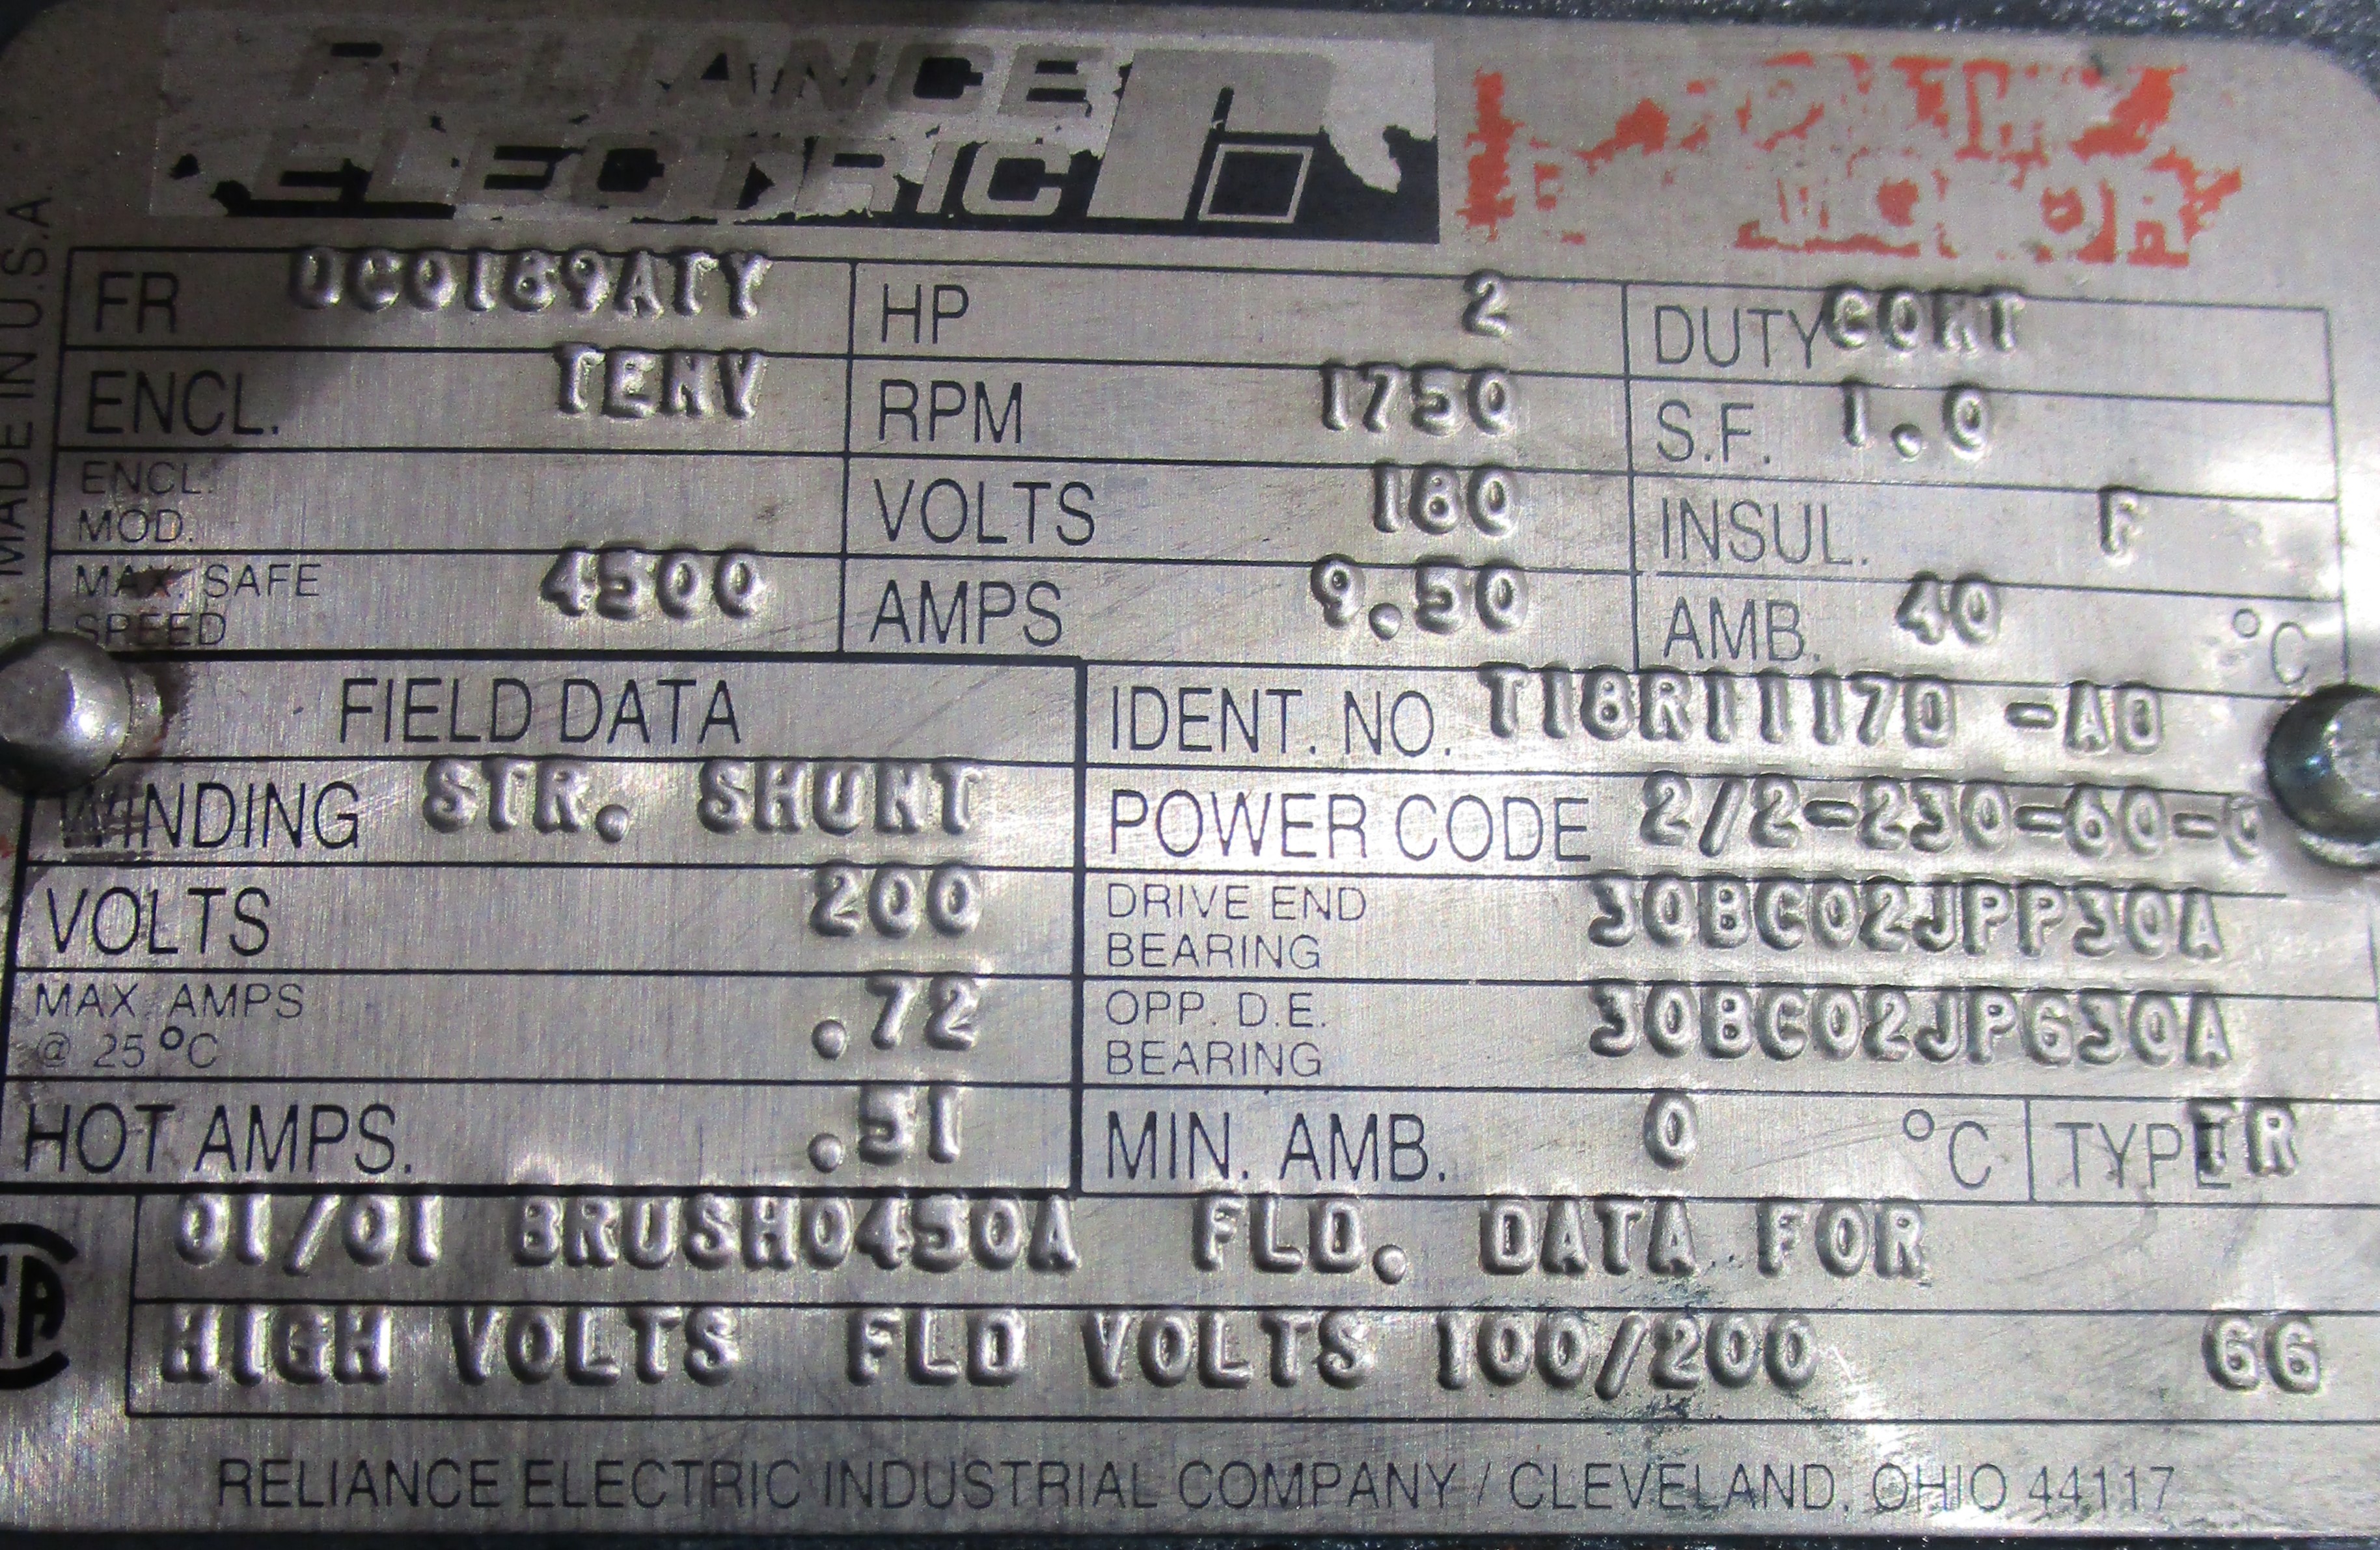 RELIANCE
ELECTRIC
MOTOR
MADE IN U.S.A.
FR DC0189ATY HP 2 DUTY CONT
ENCL. TENV RPM 1750 S.F. 1.0
ENCL. MOD. VOLTS 180 INSUL. F
MAX. SAFE SPEED 4500 AMPS 9.50 AMB. 40 °C
FIELD DATA IDENT. NO. T18R11170 -A0
WINDING STR. SHUNT POWER CODE 2/2-230-60-0
VOLTS 200 DRIVE END BEARING 30BC02JPP30A
MAX. AMPS @ 25 °C .72 OPP. D.E. BEARING 30BC02JPG30A
HOT AMPS. .51 MIN. AMB. 0 °C TYPE TR
01/01 BRUSH0450A FLD. DATA FOR
HIGH VOLTS FLD VOLTS 100/200 66
RELIANCE ELECTRIC INDUSTRIAL COMPANY / CLEVELAND, OHIO 44117